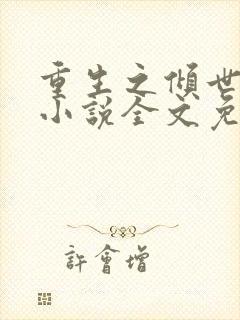 重生之倾世
小说全文免
許會增